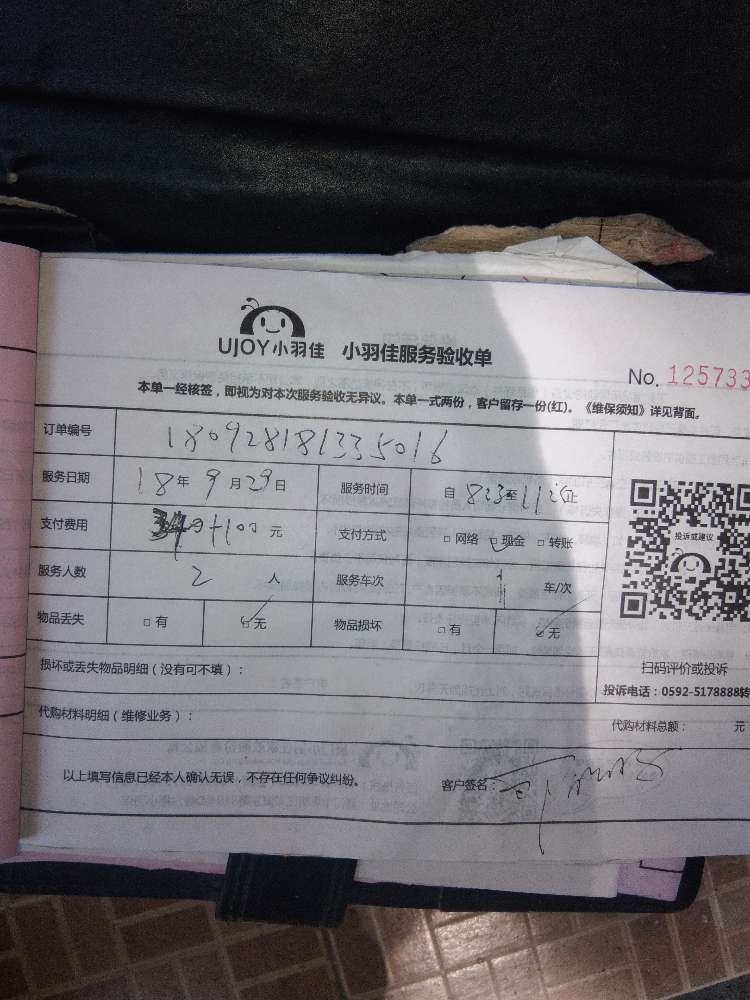 UJOY小羽佳 小羽佳服务验收单
No. 125733
本单一经核签，即视为对本次服务验收无异议。本单一式两份，客户留存一份(红)。《维保须知》详见背面。
订单编号 180928181335016
服务日期 18年9月29日 服务时间 自8:23至11:止
支付费用 +100元 支付方式 □网络 □现金 □转账
服务人数 2人 服务车次 1车/次
物品丢失 □有 □无 物品损坏 □有 □无
投诉或建议
扫码评价或投诉
投诉电话：0592-5178888转
损坏或丢失物品明细（没有可不填）：
代购材料明细（维修业务）： 代购材料总额： 元
以上填写信息已经本人确认无误，不存在任何争议纠纷。 客户签名：